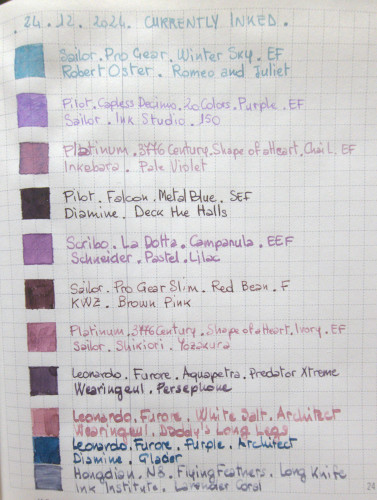 24.12.2024. CURRENTLY INKED.
Sailor. Pro Gear. Winter Sky. EF
Robert Oster. Romeo and Juliet
Pilot. Capless Decimo. 20 Colors. Purple. EF
Sailor. Ink Studio. 150
Platinum. 3776 Century. Shape of a Heart. Chai L. EF
Inkebara. Pale Violet
Pilot. Falcon. Metal Blue. SEF
Diamine. Deck the Halls
Scribo. La Dotta. Campanula. EEF
Schneider. Pastel. Lilac
Sailor. Pro Gear Slim. Red Bean. F
KWZ. Brown Pink
Platinum. 3776 Century. Shape of a Heart. Ivory. EF
Sailor. Shikiori. Yozakura
Leonardo. Furore. Aquapetra. Predator Xtreme
Wearingeul. Persephone
Leonardo. Furore. White Salt. Architect
Wearingeul. Daddy's Long Legs
Leonardo. Furore. Purple. Architect
Diamine. Glacier
Hongdian. N8. Flying Feathers. Long Knife
Ink Institute. Lavender Coral